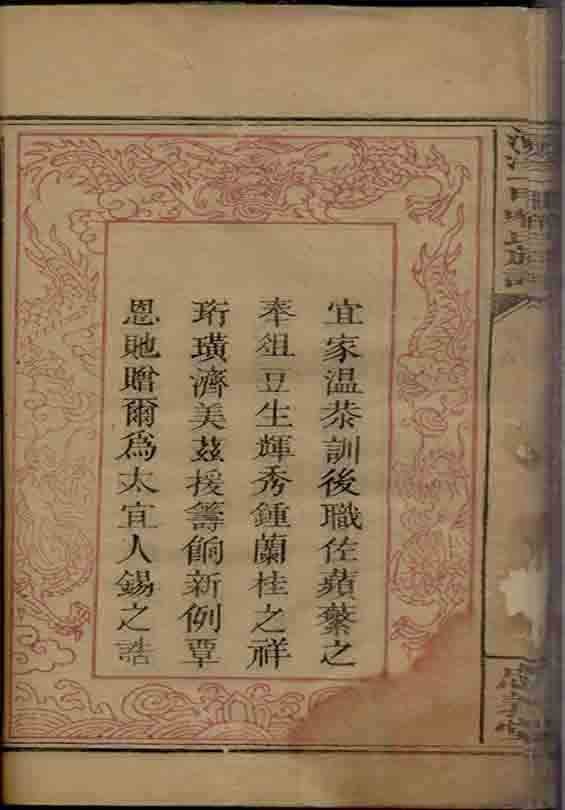 宜家溫恭訓後職佐蘋蘩之
奉俎豆生輝秀鍾蘭桂之祥
珩璜濟美茲援籌餉新例覃
恩貤贈爾爲太宜人錫之誥